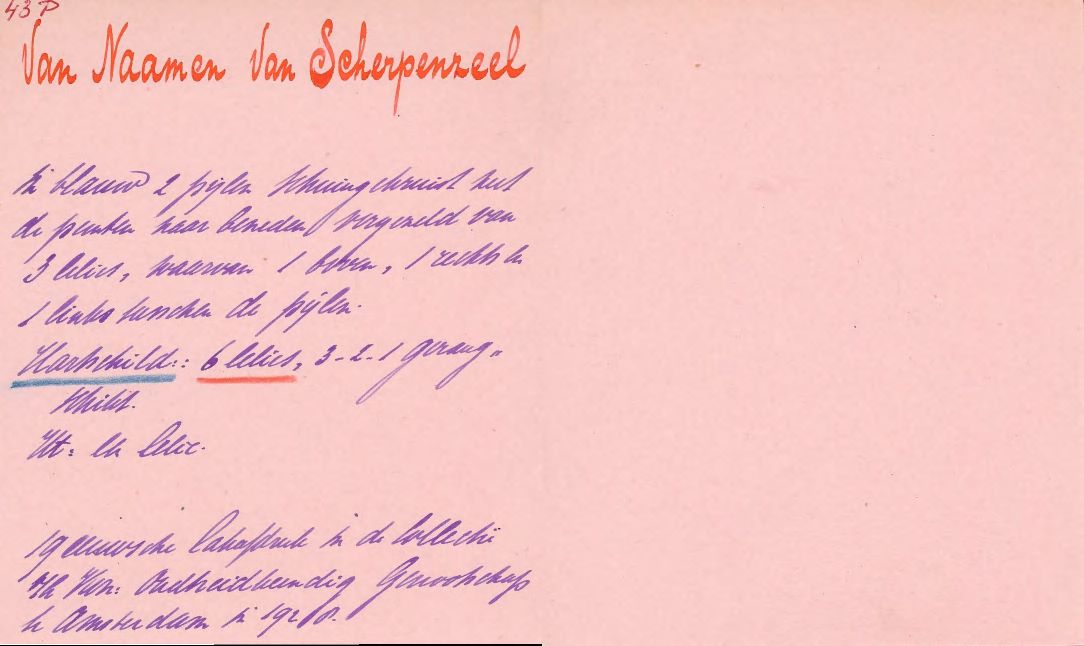 43 P
Van Naamen van Scherpenzeel
In blauw 2 pijlen schuingekruist met
de punten naar beneden, vergezeld van
3 lelies, waarvan 1 boven, 1 rechts en
1 links tusschen de pijlen.
Hartschild:: 6 lelies, 3-2-1 gerang„
schikt.
Ht: een lelie.
19 eeuwsche lakafdruk in de collectie
v/h Kon: Oudheidkundig Genootschap
te Amsterdam in 1928.